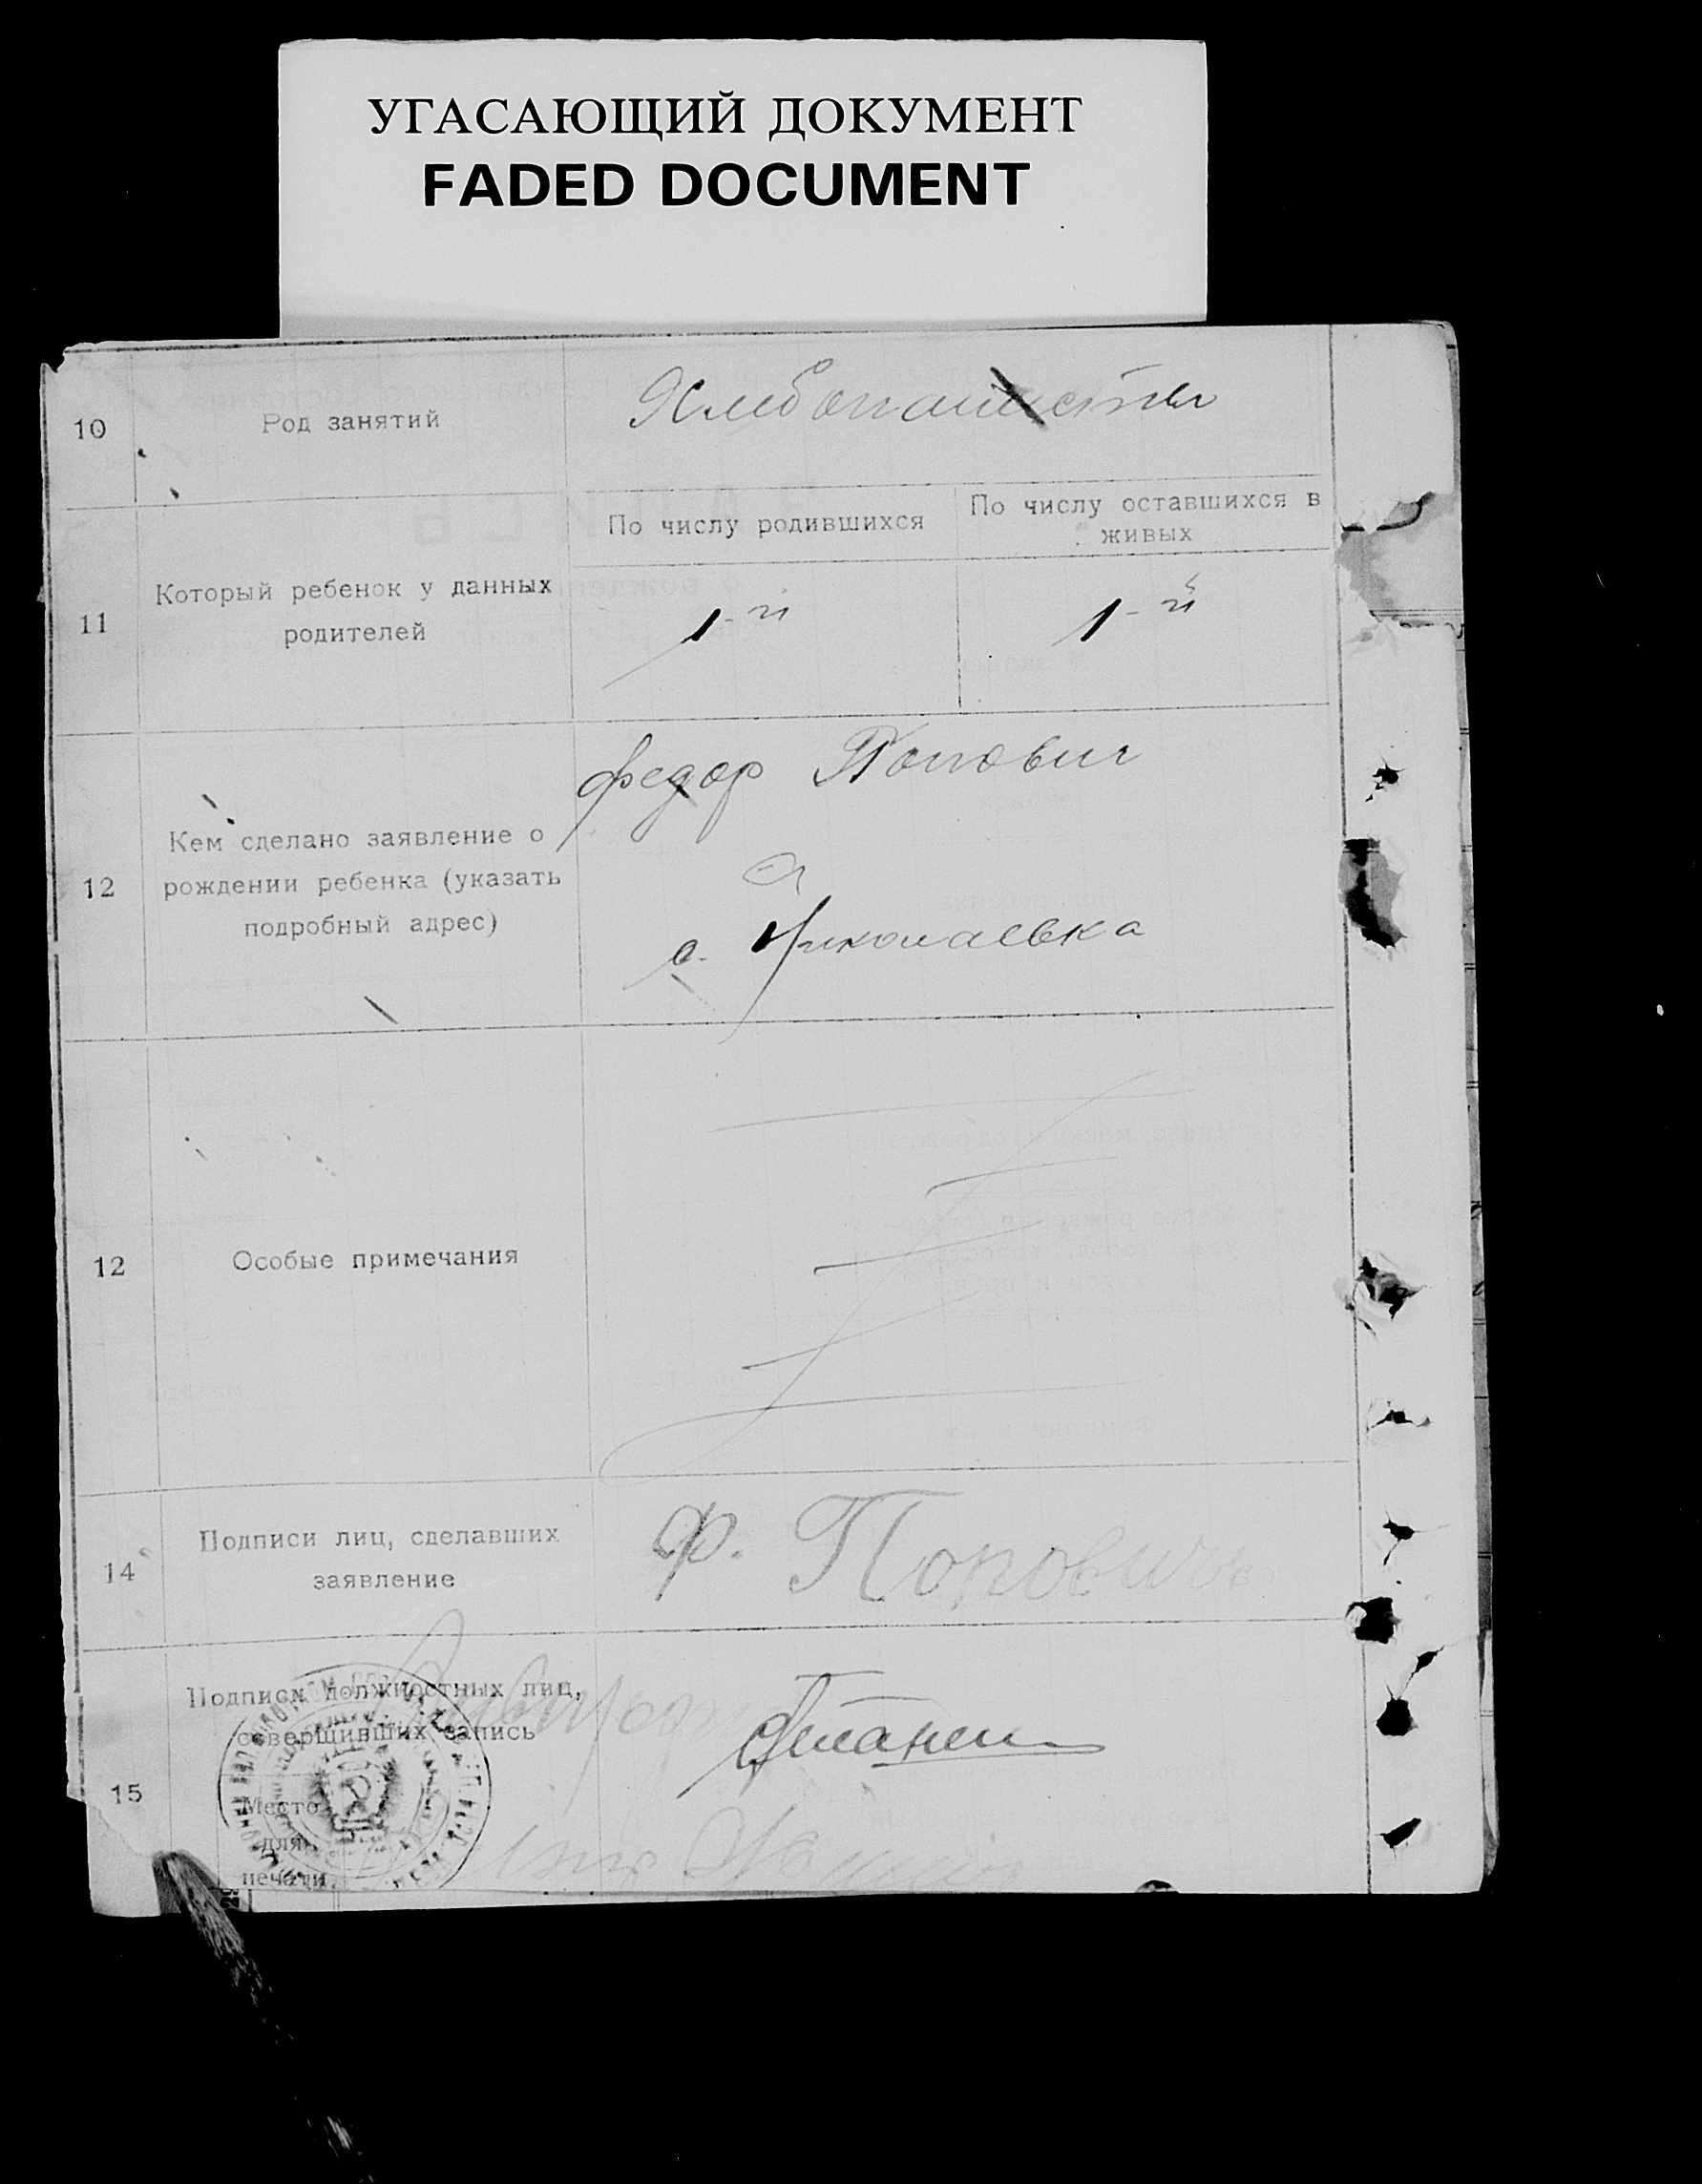 УГАСАЮЩИЙ ДОКУМЕНТ
FADED DOCUMENT
10 Род занятий
По числу родившихся По числу оставшихся в
живых
11 Который ребенок у данных
родителей
1-й 1-й
12 Кем сделано заявление о
рождении ребенка (указать
подробный адрес)
Федор Попович
с. Николаевка
12 Особые примечания
14 Подписи лиц, сделавших
заявление
Ф. Попович
15 Подписи должностных лиц,
совершивших запись
Место
для
печати